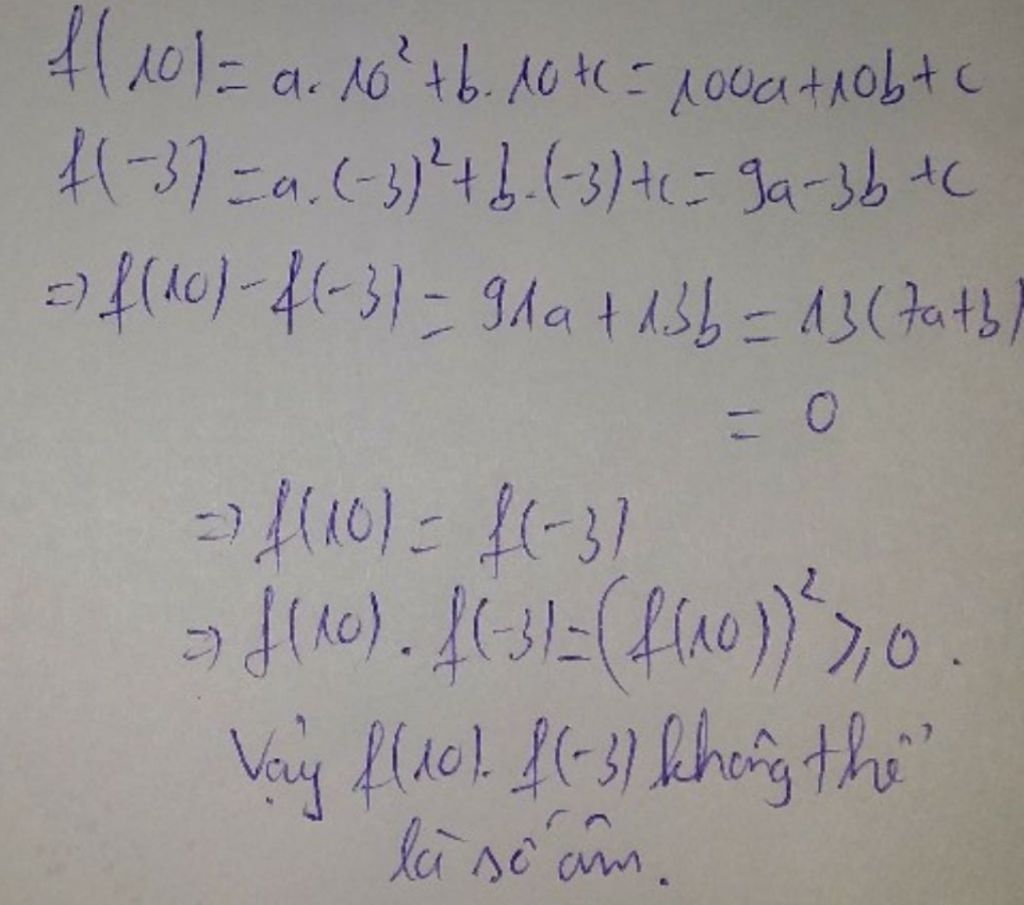 f(10) = a.10² + b.10 + c = 100a + 10b + c
f(-3) = a.(-3)² + b.(-3) + c = 9a - 3b + c
=> f(10) - f(-3) = 91a + 13b = 13(7a+b)
= 0
=> f(10) = f(-3)
=> f(10) . f(-3) = (f(10))² ≥ 0 .
Vậy f(10). f(-3) không thể
là số âm.